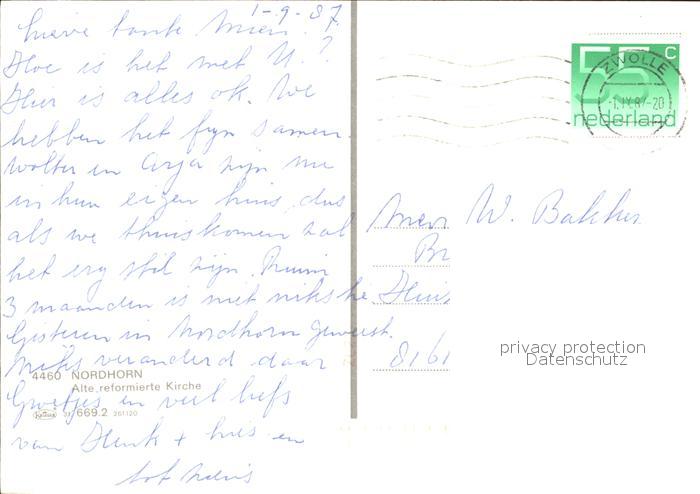 1-9-87.
Lieve tante Mien.
Hoe is het met U.?
Hier is alles ok. We
hebben het fijn samen.
Wolter en Arja zijn nu
in hun eigen huis, dus
als we thuiskomen zal
het erg stil zijn. Ruim
3 maanden is niet niks hè
Gisteren in Nordhorn geweest.
Niks veranderd daar
Groetjes en veel liefs
van Henk + en
tot ziens
4460 NORDHORN
Alte reformierte Kirche
669.2 261120
55 c
nederland
ZWOLLE
-1.IX.87-20
Mevr W. Bakker
Br
Huis
8161
privacy protection
Datenschutz